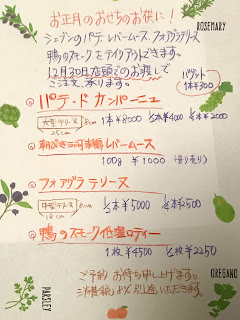 お正月のおせちのお供に！
ROSEMARY
シェフのパテ、レバームース、フォアグラテリーヌ
鴨のスモークをテイクアウトできます。
12月30日店頭でのお渡しで
ご注文承ります。
バゲット
1本¥300
パテ・ド カンパーニュ
大型テリーヌ 8cm
25cm
1本¥8000 1/2本¥4000 1/4本¥2000
朝びき三河赤鶏レバームース
100g ¥1000 (量り売り)
フォアグラ テリーヌ
中型テリーヌ 8cm
18cm
1本¥5000 1/2本¥2500
鴨のスモーク低温ロティー
1枚¥4500 1/2枚¥2250
ご予約お待ち申し上げます。
消費税8%別途いただきます。
PARSLEY
OREGANO